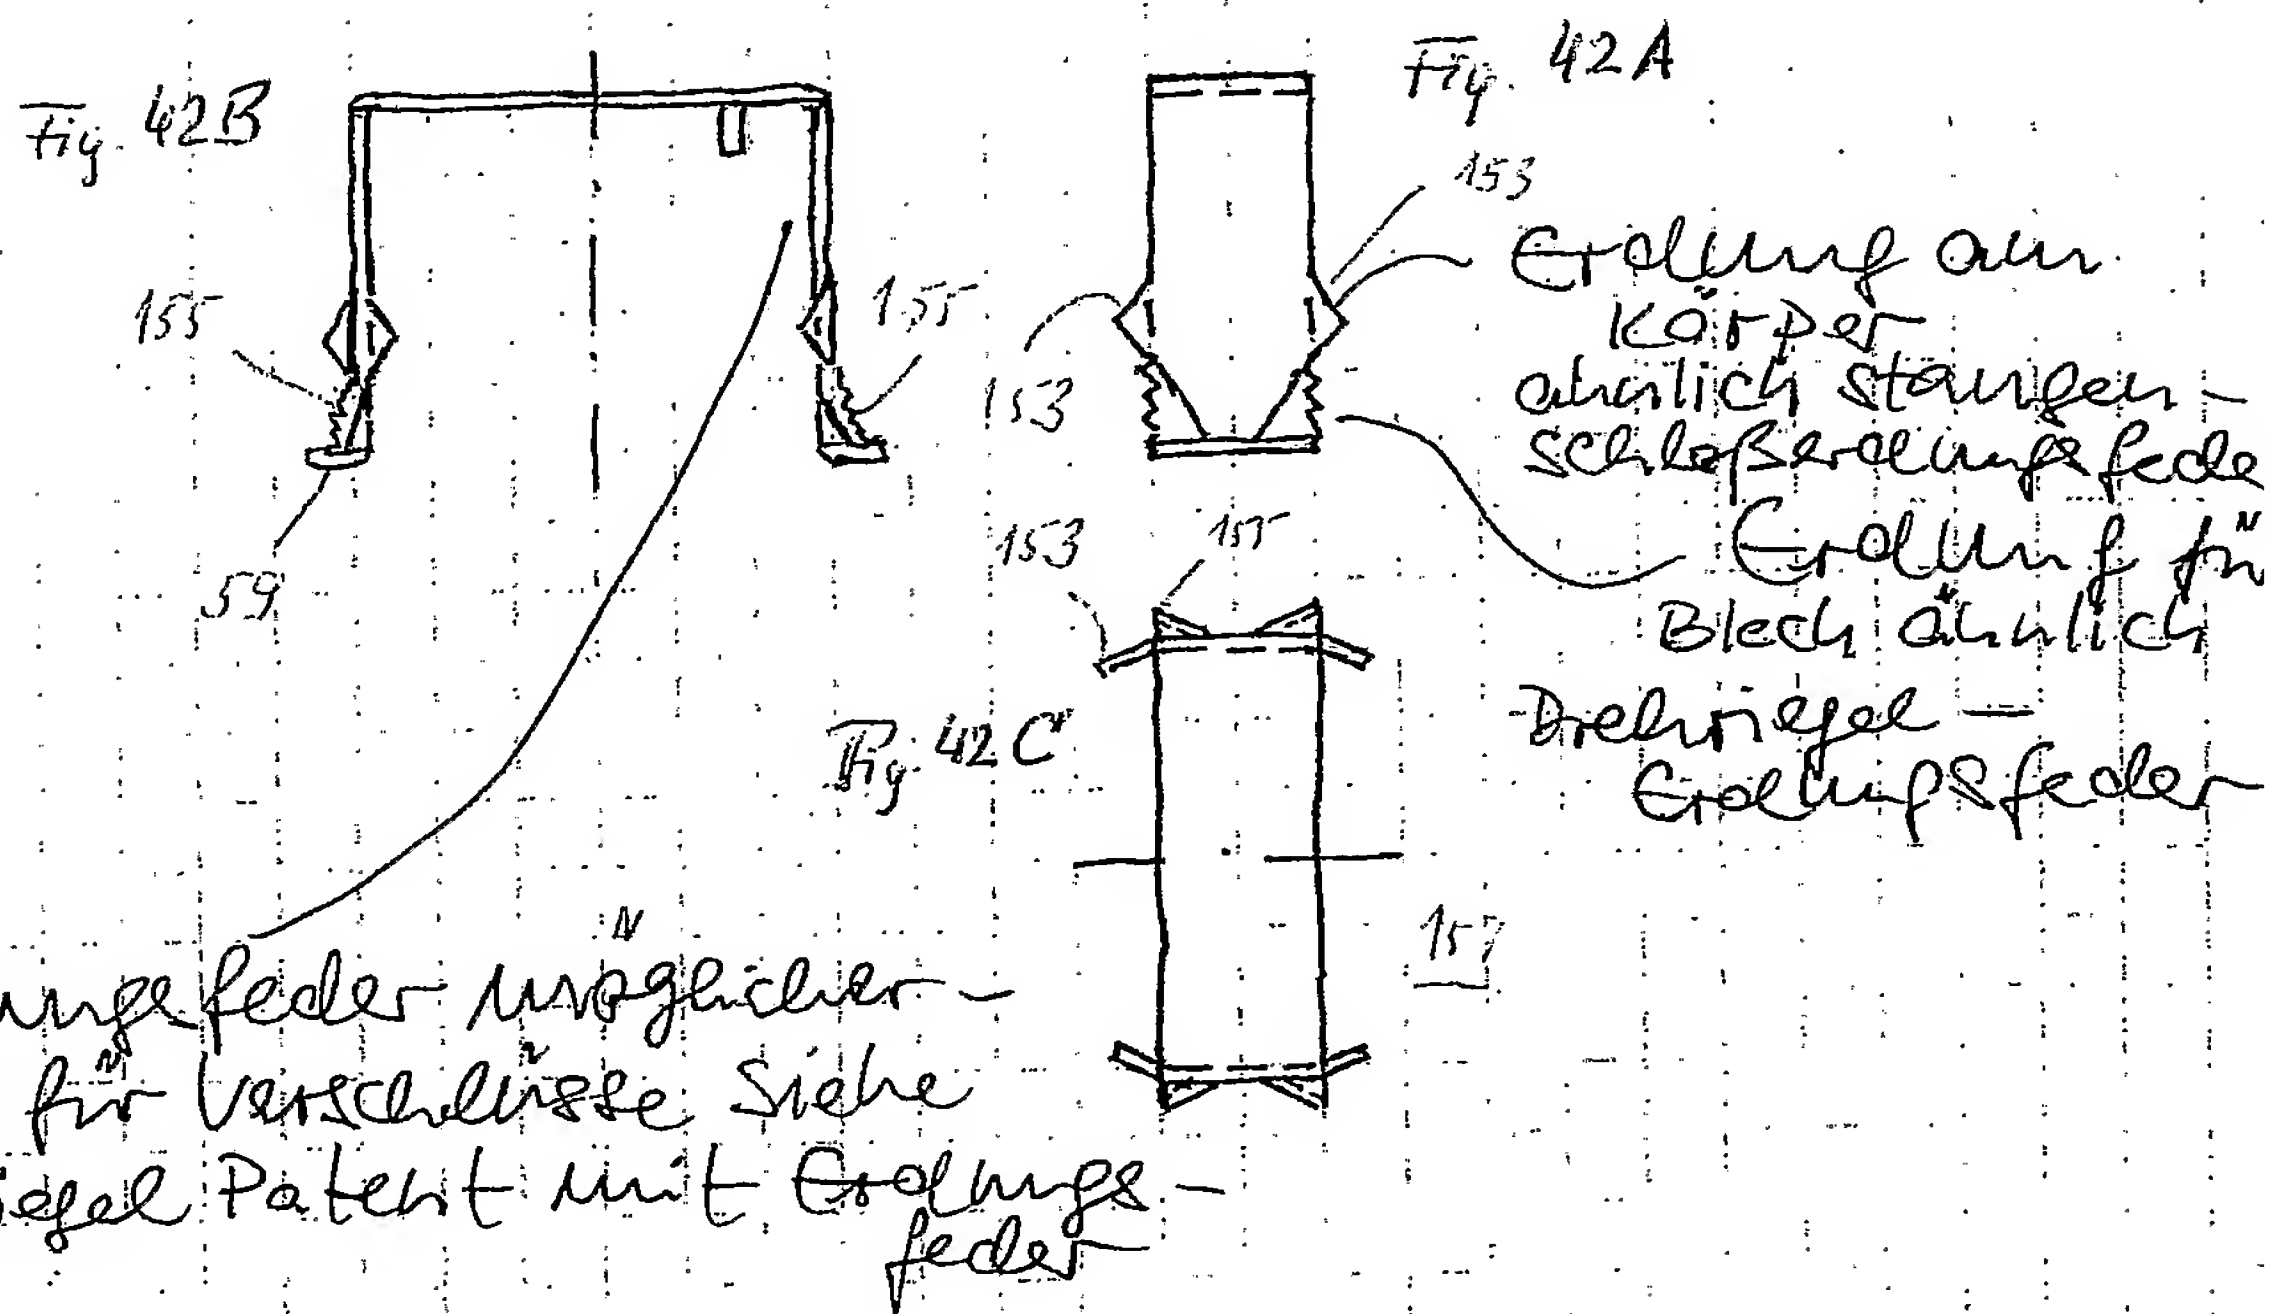 Fig. 42B
Fig. 42A
153
155
155
153
59
Erdung am
Körper
ähnlich Stangen-
schloßerdungsfede
Erdung fü
Blech ähnlich
Drehriegel-
Erdungsfeder
153
155
Fig. 42C
157
ungsfeder möglicher-
für Verschlüsse Siehe
iegel Patent mit Erdungs-
feder